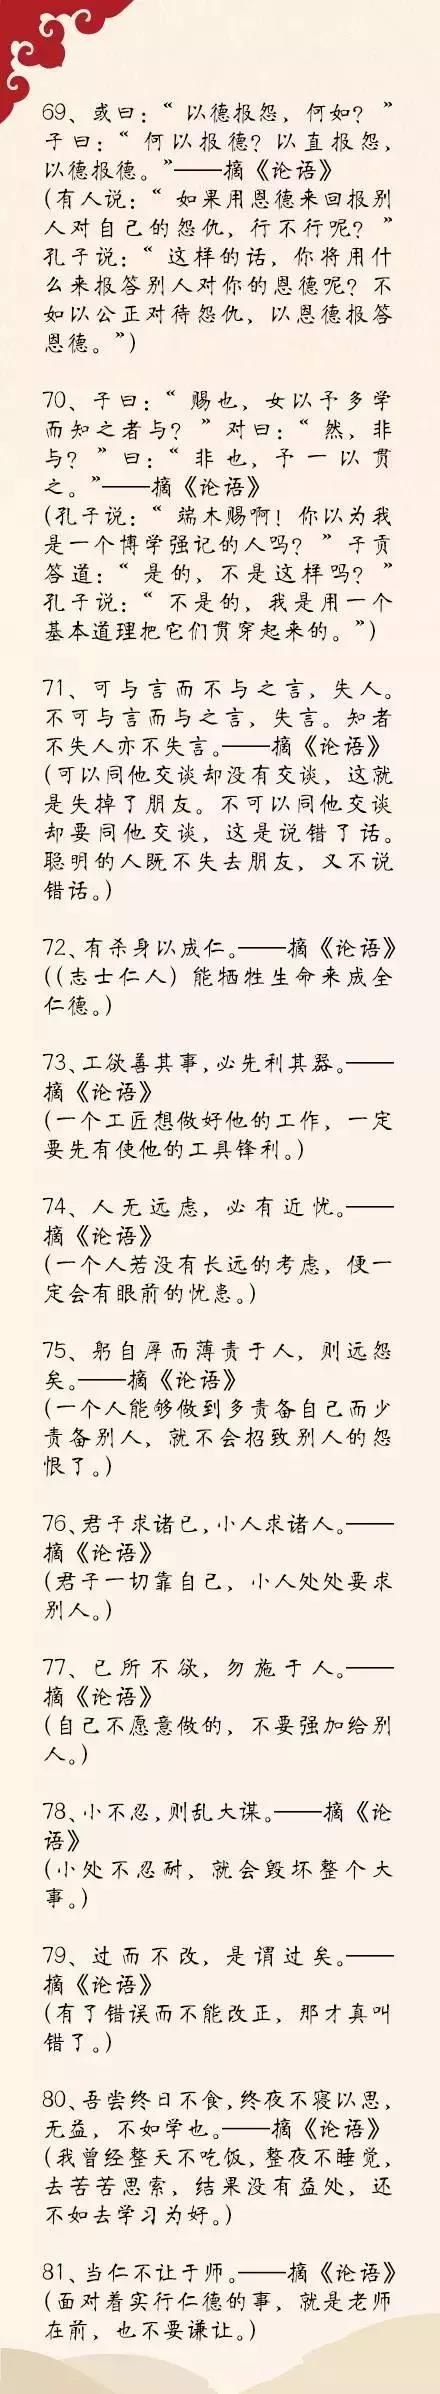 69、或曰：“以德报怨，何如？”
子曰：“何以报德？以直报怨，
以德报德。”——摘《论语》
(有人说：“如果用恩德来回报别
人对自己的怨仇，行不行呢？”
孔子说：“这样的话，你将用什
么来报答别人对你的恩德呢？不
如以公正对待怨仇，以恩德报答
恩德。”)
70、子曰：“赐也，女以予多学
而知之者与？”对曰：“然，非
与？”曰：“非也，予一以贯
之。”——摘《论语》
(孔子说：“端木赐啊！你以为我
是一个博学强记的人吗？”子贡
答道：“是的，不是这样吗？”
孔子说：“不是的，我是用一个
基本道理把它们贯穿起来的。”)
71、可与言而不与之言，失人。
不可与言而与之言，失言。知者
不失人亦不失言。——摘《论语》
(可以同他交谈却没有交谈，这就
是失掉了朋友。不可以同他交谈
却要同他交谈，这是说错了话。
聪明的人既不失去朋友，又不说
错话。)
72、有杀身以成仁。——摘《论语》
((志士仁人) 能牺牲生命来成全
仁德。)
73、工欲善其事，必先利其器。——
摘《论语》
(一个工匠想做好他的工作，一定
要先有使他的工具锋利。)
74、人无远虑，必有近忧。——
摘《论语》
(一个人若没有长远的考虑，便一
定会有眼前的忧患。)
75、躬自厚而薄责于人，则远怨
矣。——摘《论语》
(一个人能够做到多责备自己而少
责备别人，就不会招致别人的怨
恨了。)
76、君子求诸已，小人求诸人。——
摘《论语》
(君子一切靠自己，小人处处要求
别人。)
77、已所不欲，勿施于人。——
摘《论语》
(自己不愿意做的，不要强加给别
人。)
78、小不忍，则乱大谋。——摘《论
语》
(小处不忍耐，就会毁坏整个大
事。)
79、过而不改，是谓过矣。——
摘《论语》
(有了错误而不能改正，那才真叫
错了。)
80、吾尝终日不食，终夜不寝以思，
无益，不如学也。——摘《论语》
(我曾经整天不吃饭，整夜不睡觉，
去苦苦思索，结果没有益处，还
不如去学习为好。)
81、当仁不让于师。——摘《论语》
(面对着实行仁德的事，就是老师
在前，也不要谦让。)